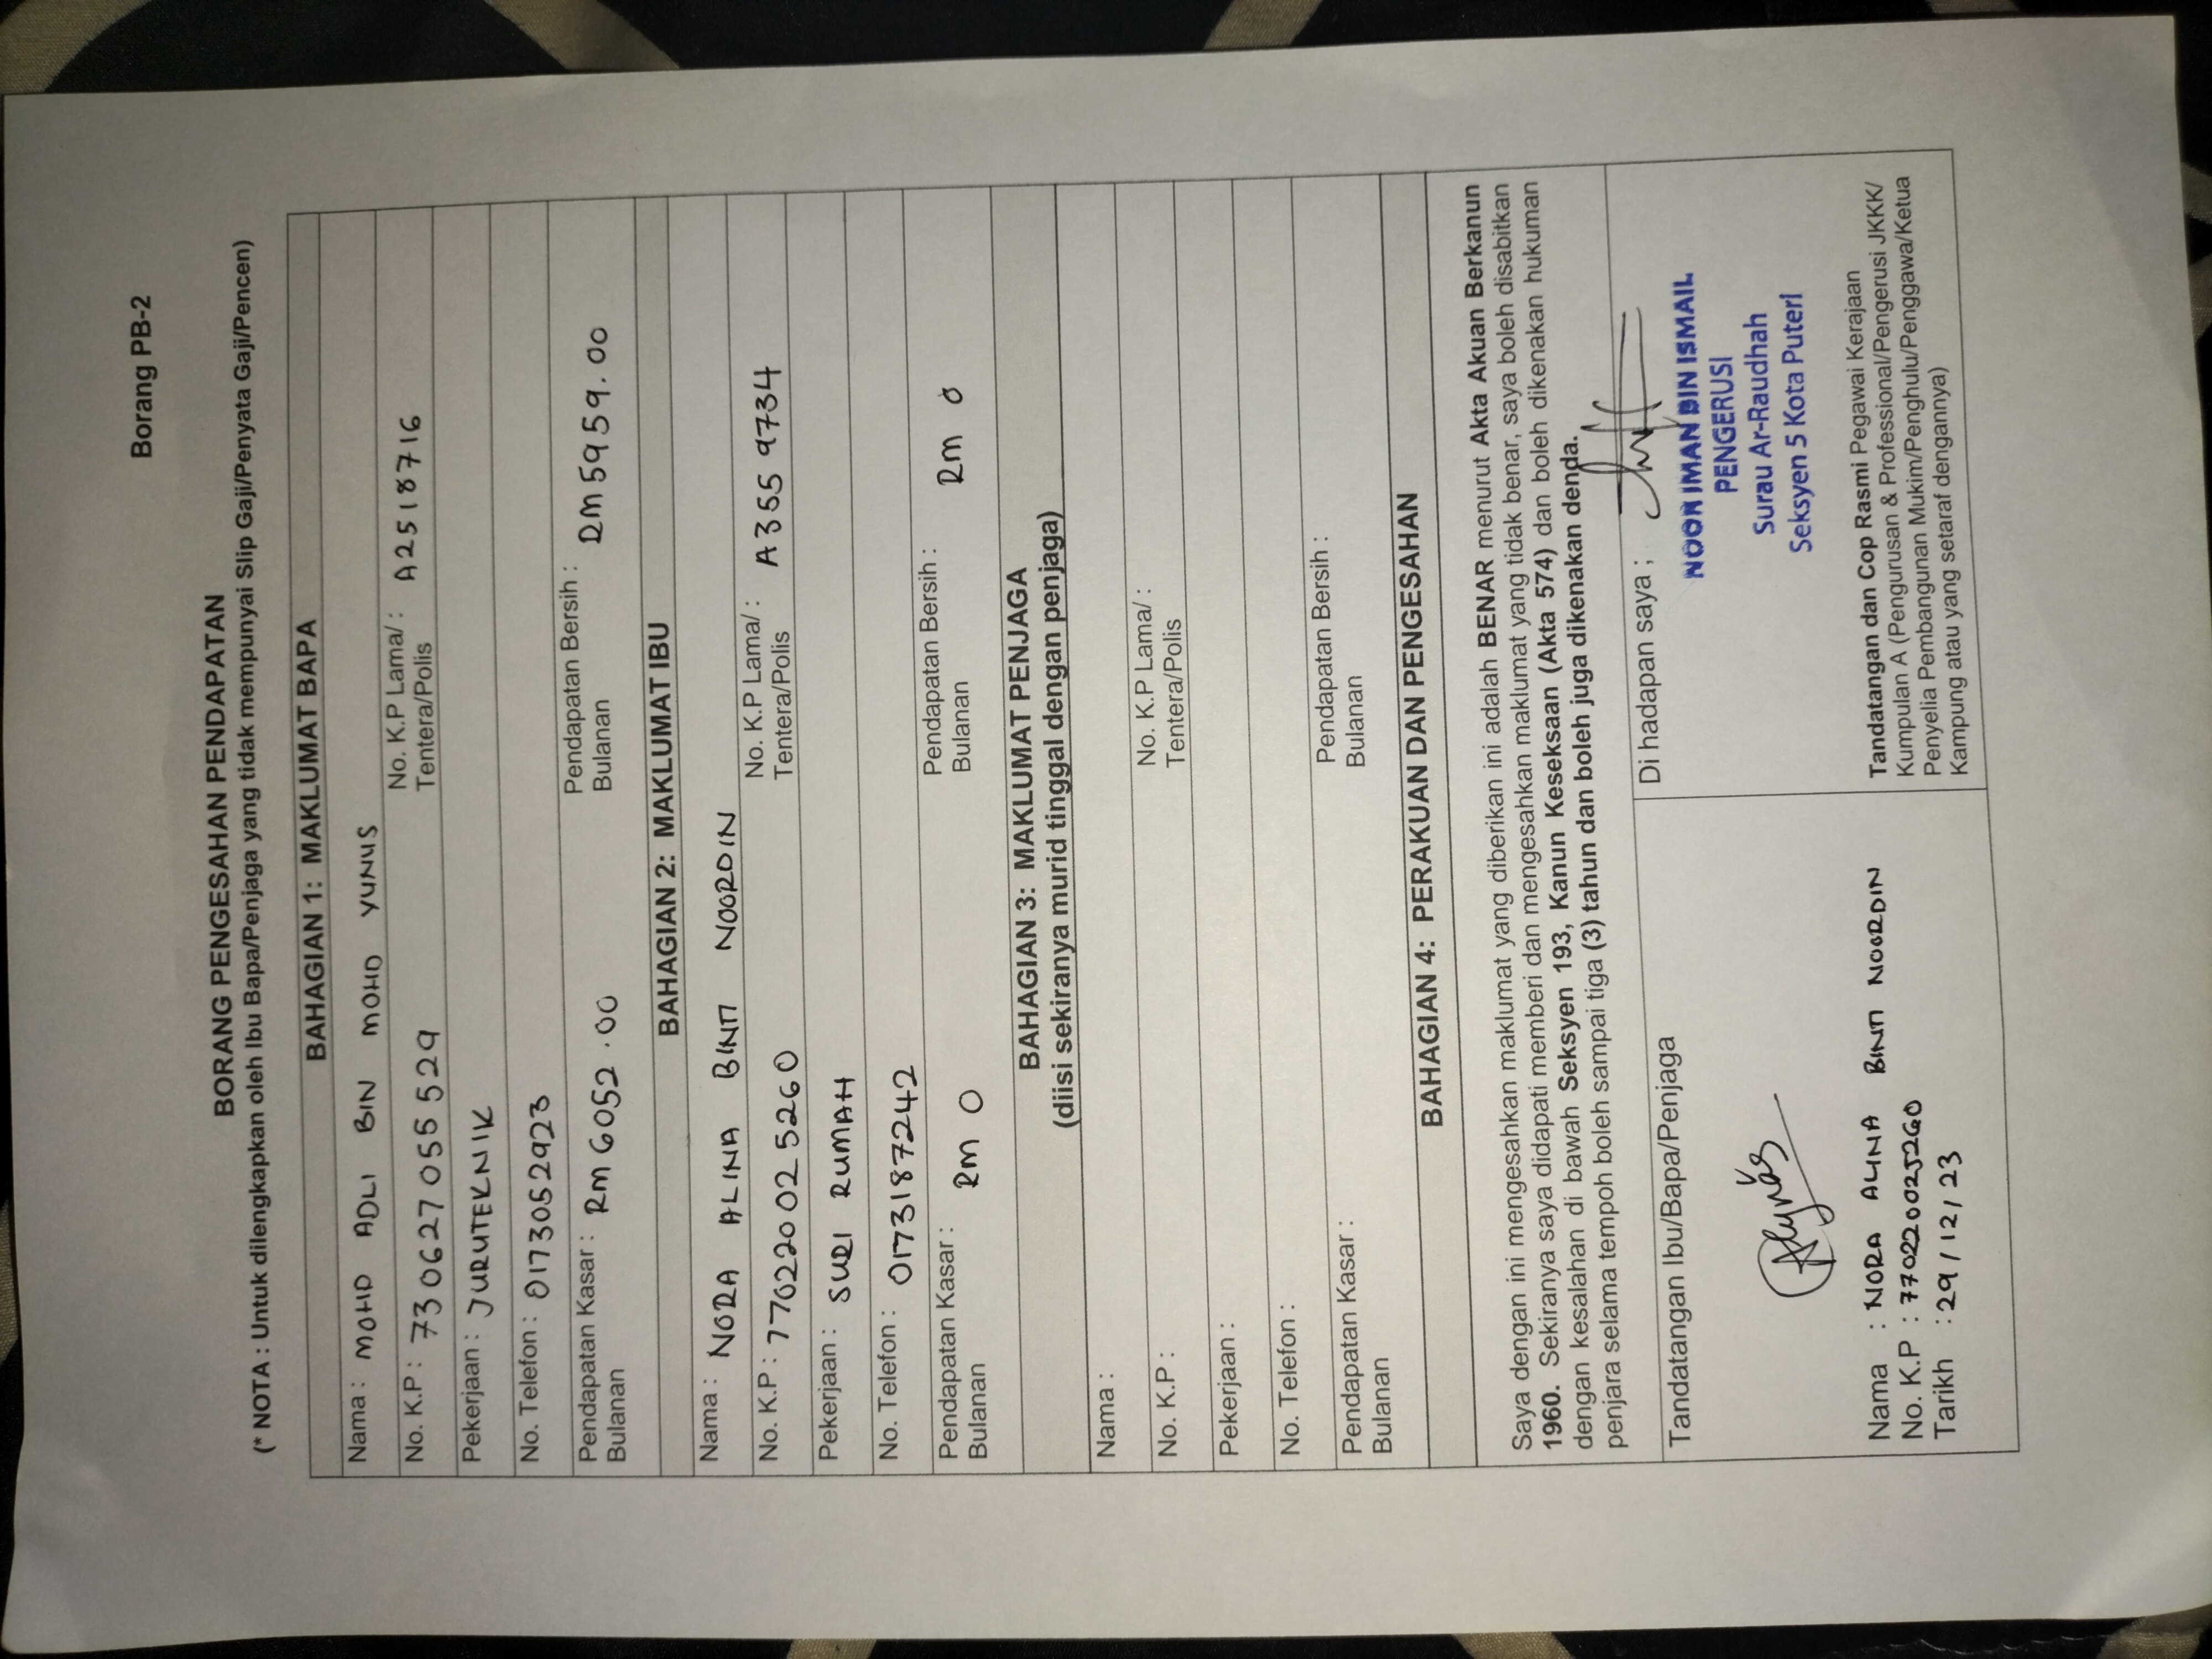 Borang PB-2
BORANG PENGESAHAN PENDAPATAN
(* NOTA : Untuk dilengkapkan oleh Ibu Bapa/Penjaga yang tidak mempunyai Slip Gaji/Penyata Gaji/Pencen)
BAHAGIAN 1: MAKLUMAT BAPA
Nama : MOHD ADLI BIN MOHD YUNUS
No. K.P : 730627055529 No. K.P Lama/ : A2518716
Tentera/Polis
Pekerjaan : JURUTEKNIK
No. Telefon : 0173052923
Pendapatan Kasar : RM 6052.00 Pendapatan Bersih : RM 5959.00
Bulanan Bulanan
BAHAGIAN 2: MAKLUMAT IBU
Nama : NORA ALINA BINTI NOORDIN
No. K.P : 770220025260 No. K.P Lama/ : A3559734
Tentera/Polis
Pekerjaan : SURI RUMAH
No. Telefon : 0173187242
Pendapatan Kasar : RM 0 Pendapatan Bersih : RM 0
Bulanan Bulanan
BAHAGIAN 3: MAKLUMAT PENJAGA
(diisi sekiranya murid tinggal dengan penjaga)
Nama :
No. K.P : No. K.P Lama/ :
Tentera/Polis
Pekerjaan :
No. Telefon :
Pendapatan Kasar : Pendapatan Bersih :
Bulanan Bulanan
BAHAGIAN 4: PERAKUAN DAN PENGESAHAN
Saya dengan ini mengesahkan maklumat yang diberikan ini adalah BENAR menurut Akta Akuan Berkanun
1960. Sekiranya saya didapati memberi dan mengesahkan maklumat yang tidak benar, saya boleh disabitkan
dengan kesalahan di bawah Seksyen 193, Kanun Keseksaan (Akta 574) dan boleh dikenakan hukuman
penjara selama tempoh boleh sampai tiga (3) tahun dan boleh juga dikenakan denda.
Tandatangan Ibu/Bapa/Penjaga
Nama : NORA ALINA BINTI NOORDIN
No. K.P : 770220025260
Tarikh : 29/12/23
Di hadapan saya ;
NOOR IMAN BIN ISMAIL
PENGERUSI
Surau Ar-Raudhah
Seksyen 5 Kota Puteri
Tandatangan dan Cop Rasmi Pegawai Kerajaan
Kumpulan A (Pengurusan & Professional/Pengerusi JKKK/
Penyelia Pembangunan Mukim/Penghulu/Penggawa/Ketua
Kampung atau yang setaraf dengannya)